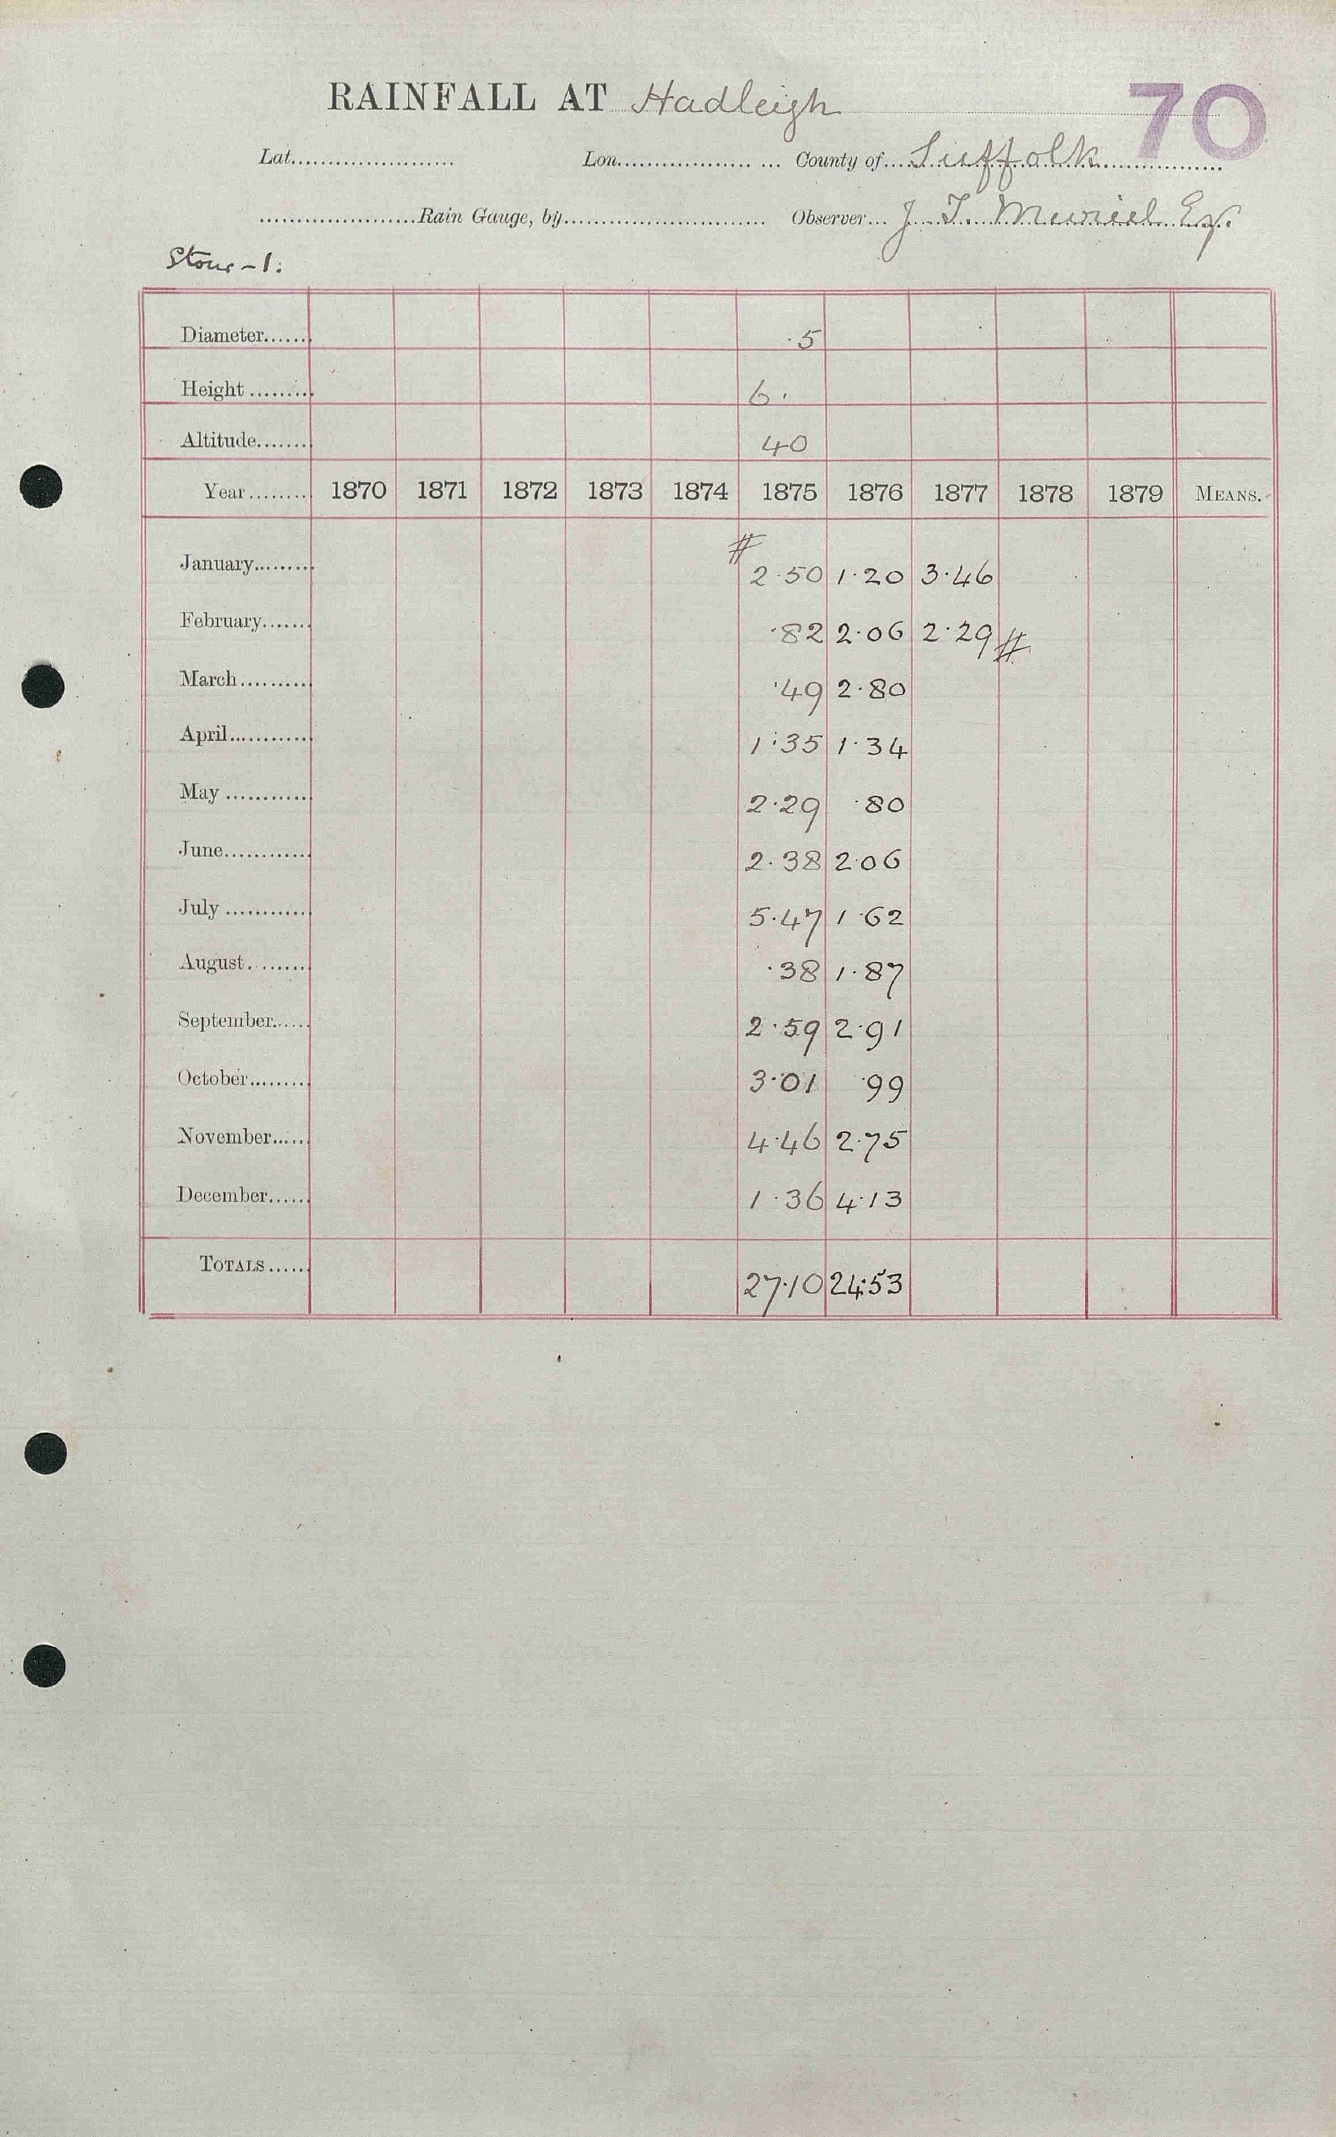 RAINFALL AT Hadleigh 70
Lat. Lon. County of Suffolk
Rain Gauge, by Observer J. T. Muriel Esq.
Stour-1.
Diameter 5
Height 6.
Altitude 40
Year 1870 1871 1872 1873 1874 1875 1876 1877 1878 1879 MEANS.
#
January 2.50 1.20 3.46
February .82 2.06 2.29 #
March .49 2.80
April 1.35 1.34
May 2.29 .80
June 2.38 2.06
July 5.47 1.62
August .38 1.87
September 2.59 2.91
October 3.01 .99
November 4.46 2.75
December 1.36 4.13
TOTALS 27.10 24.53